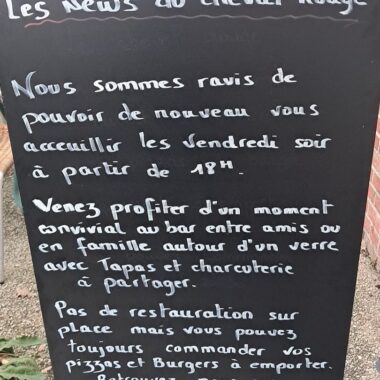 Les News du Cheval Rouge
Nous sommes ravis de
pouvoir de nouveau vous
acceuillir les vendredi soir
à partir de 18H.
Venez profiter d'un moment
convivial au bar entre amis ou
en famille autour d'un verre
avec Tapas et charcuterie
à partager.
Pas de restauration sur
place mais vous pouvez
toujours commander vos
pizzas et Burgers à emporter.
Retrouvez